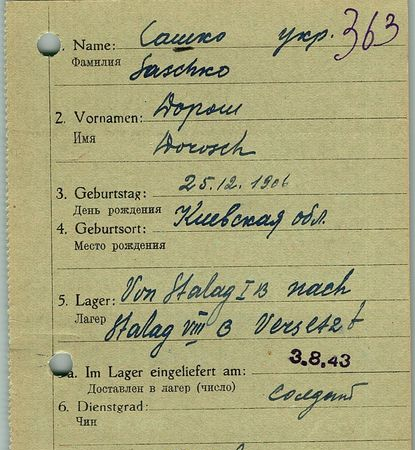 1. Name: Сашко укр. 363
Фамилия Saschko
2. Vornamen: Дорош
Имя Dorosch
3. Geburtstag: 25.12.1906
День рождения
4. Geburtsort: Киевская обл.
Место рождения
5. Lager: Von Stalag I B nach
Лагер Stalag VIII B Versetzt
5a. Im Lager eingeliefert am: 3.8.43
Доставлен в лагер (число)
6. Dienstgrad: солдат
Чин